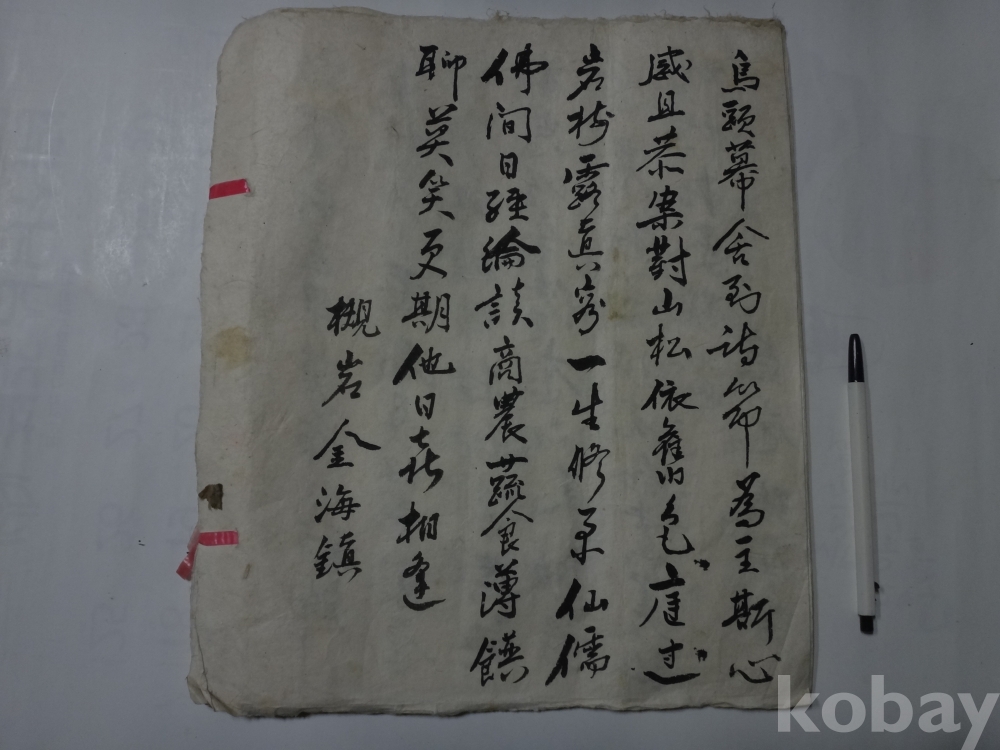 烏頭幕舍到詩筇爲主斯心
感且恭案對山松依舊色庭過
岩樹露眞容一生修仙儒
佛間日經綸談商農蔬食薄饌
聊莫笑更期他日喜相逢
槻岩金海鎭
kobay